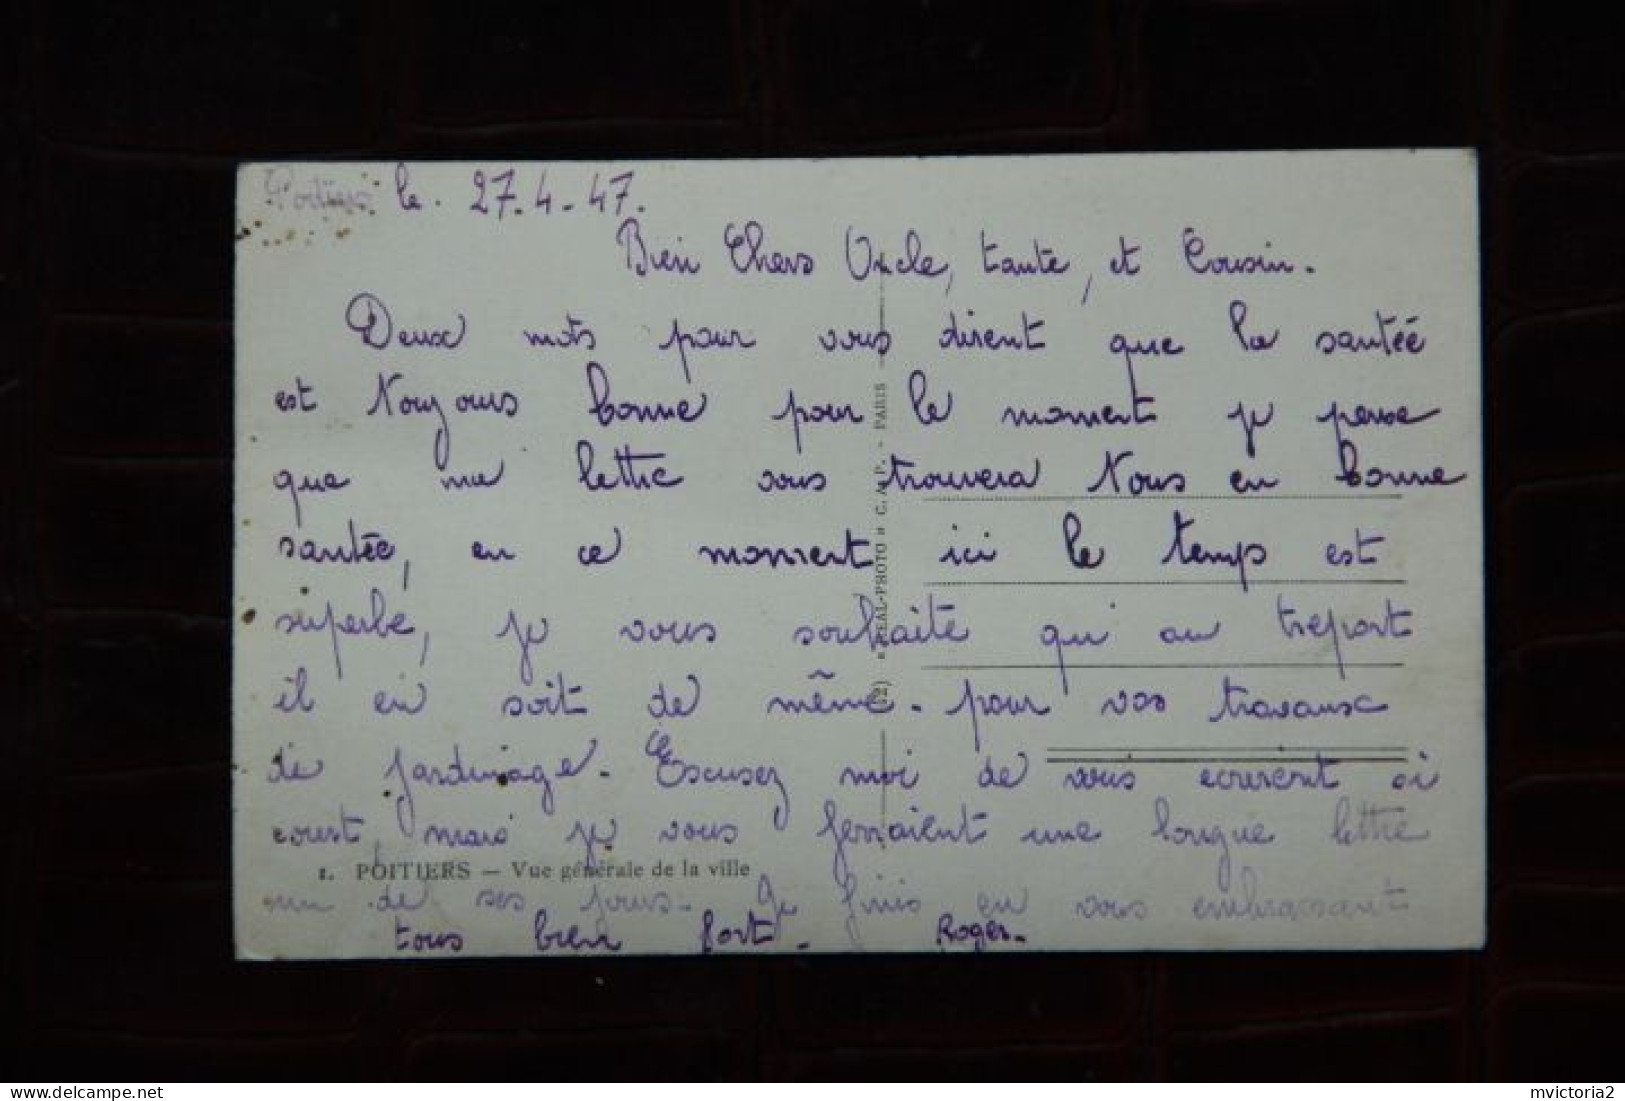 Poitiers le. 27.4.47.
Bien Chers Oncle, tante, et Cousin.
Deux mots pour vous disent que la santéé
est Toujours bonne pour le moment je pense
que ma lettre vous trouvera Tous en bonne
santée, en ce moment ici le temps est
superbe, je vous souhaite qu'i au treport
il en soit de même. pour vos travaux
de jardinage. Escusez moi de vous ecrirent si
court, mais je vous ferraient une longue lettre
un de ses jours. Je finis en vous embrassant
tous bien fort. Roger.
1. POITIERS — Vue générale de la ville
(2) « REAL-PHOTO » C. A. P. - PARIS
mvictoria2